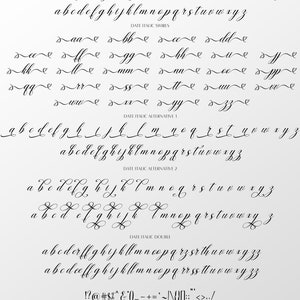 abcdefghijklmnopqrstuvwxyz
DATE ITALIC SWIRLS
aa bb cc dd
ee ff gg hh ii jj
kk ll mm nn oo pp
qq rr ss tt uu vv
ww xx yy zz
DATE ITALIC ALTERNATIVE 1
a b c d e f g h i j k l m n o p q r s t u v w x y z
abcdefghijklmnopqrstuvwxyz
DATE ITALIC ALTERNATIVE 2
a b c d e f g h i j k l m n o p q r s t u v w x y z
a b c d e f g h i j k l m n o p q r s t u v w x y z
DATE ITALIC DOUBLE